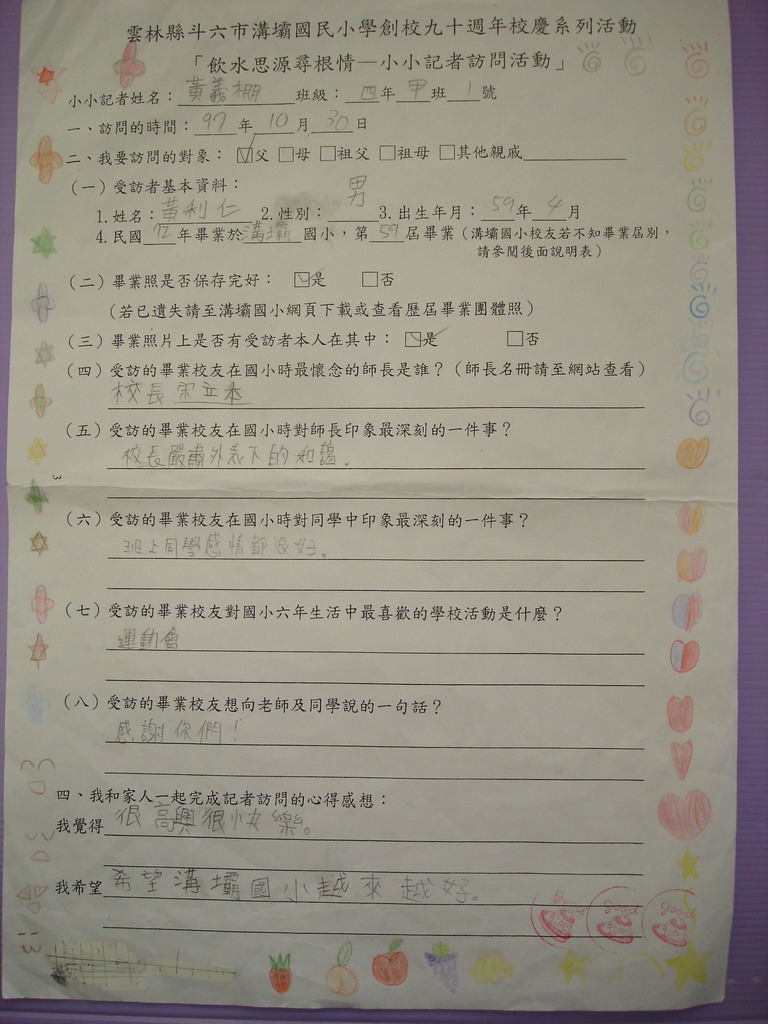 雲林縣斗六市溝壩國民小學創校九十週年校慶系列活動
「飲水思源尋根情—小小記者訪問活動」
小小記者姓名：黃義棚 班級：四年甲班1號
一、訪問的時間：97年10月30日
二、我要訪問的對象：☑父 □母 □祖父 □祖母 □其他親戚
（一）受訪者基本資料：
1.姓名：黃利仁 2.性別：男 3.出生年月：59年4月
4.民國72年畢業於溝壩國小，第59屆畢業（溝壩國小校友若不知畢業屆別，
請參閱後面說明表）
（二）畢業照是否保存完好： ☑是 □否
（若已遺失請至溝壩國小網頁下載或查看歷屆畢業團體照）
（三）畢業照片上是否有受訪者本人在其中： ☑是 □否
（四）受訪的畢業校友在國小時最懷念的師長是誰？（師長名冊請至網站查看）
校長宋立本
（五）受訪的畢業校友在國小時對師長印象最深刻的一件事？
校長嚴肅外表下的和藹。
3
（六）受訪的畢業校友在國小時對同學中印象最深刻的一件事？
班上同學感情都很好。
（七）受訪的畢業校友對國小六年生活中最喜歡的學校活動是什麼？
運動會
（八）受訪的畢業校友想向老師及同學說的一句話？
感謝你們！
四、我和家人一起完成記者訪問的心得感想：
我覺得很高興很快樂。
我希望希望溝壩國小越來越好。
good good good